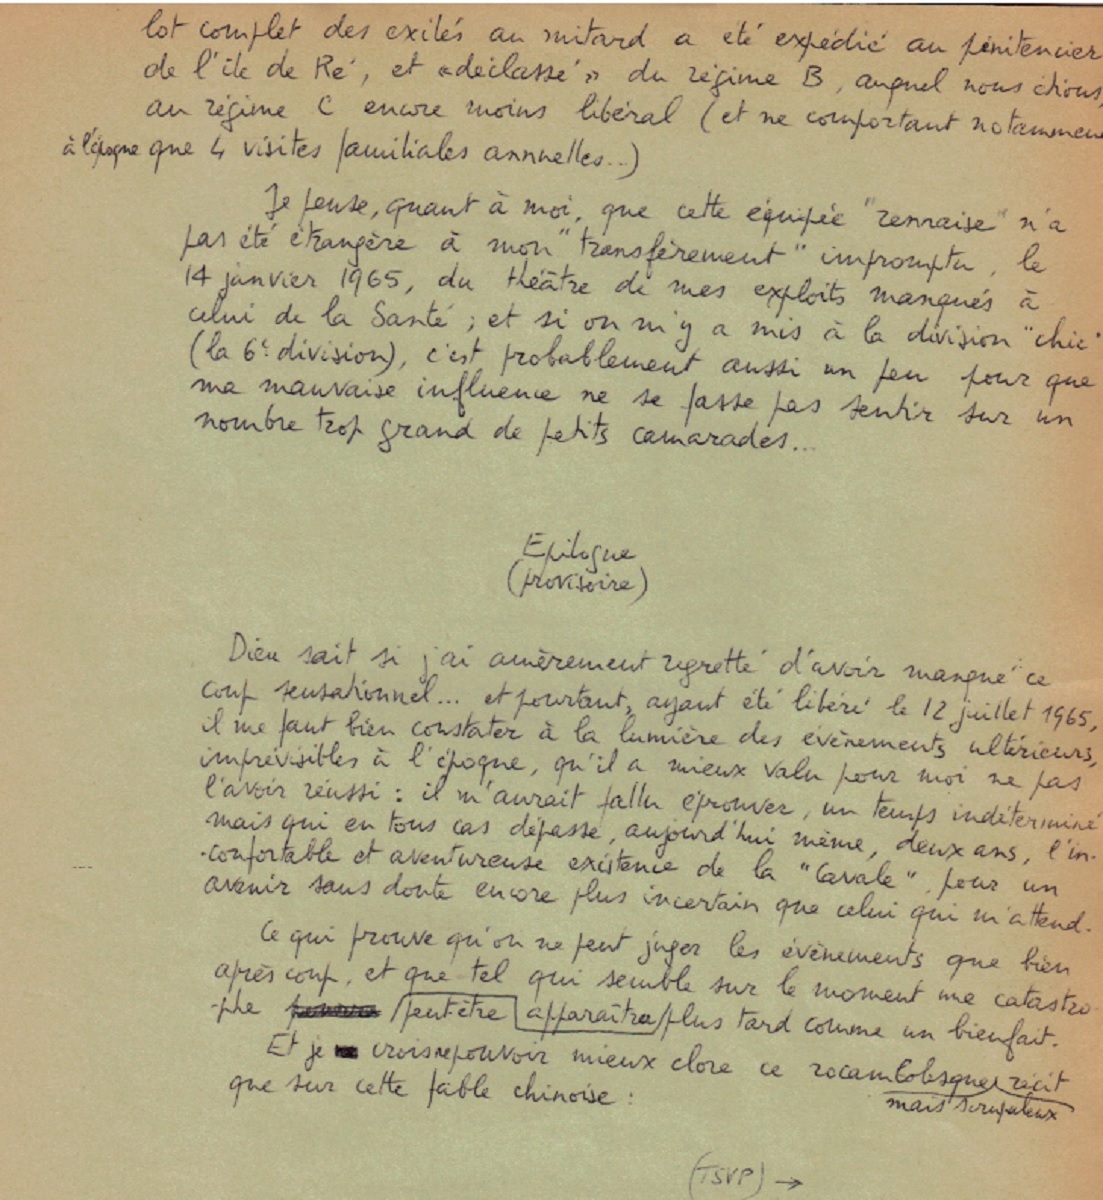 lot complet des exilés au mitard a été expédié au pénitencier
de l'île de Ré, et «déclassé» du régime B, auquel nous étions,
au régime C encore moins libéral (et ne comportant notamment
à l'époque que 4 visites familiales annuelles...)
Je pense, quant à moi, que cette équipée "rennaise" n'a
pas été étrangère à mon "transfèrement" impromptu, le
14 janvier 1965, du théâtre de mes exploits manqués à
celui de la Santé ; et si on m'y a mis à la division "chic"
(la 6e division), c'est probablement aussi un peu pour que
ma mauvaise influence ne se fasse pas sentir sur un
nombre trop grand de petits camarades...
Epilogue
(provisoire)
Dieu sait si j'ai amèrement regretté d'avoir manqué ce
coup sensationnel... et pourtant, ayant été libéré le 12 juillet 1965,
il me faut bien constater à la lumière des évènements ultérieurs,
imprévisibles à l'époque, qu'il a mieux valu pour moi ne pas
l'avoir réussi : il m'aurait fallu éprouver, un temps indéterminé
mais qui en tous cas dépasse, aujourd'hui même, deux ans, l'in-
-confortable et aventureuse existence de la "Cavale", pour un
avenir sans doute encore plus incertain que celui qui m'attend.
Ce qui prouve qu'on ne peut juger les évènements que bien
après coup, et que tel qui semble sur le moment une catastro-
-phe peut-être apparaîtra plus tard comme un bienfait.
Et je crois ne pouvoir mieux clore ce rocambolesque récit
mais scrupuleux
que sur cette fable chinoise :
(TSVP) →